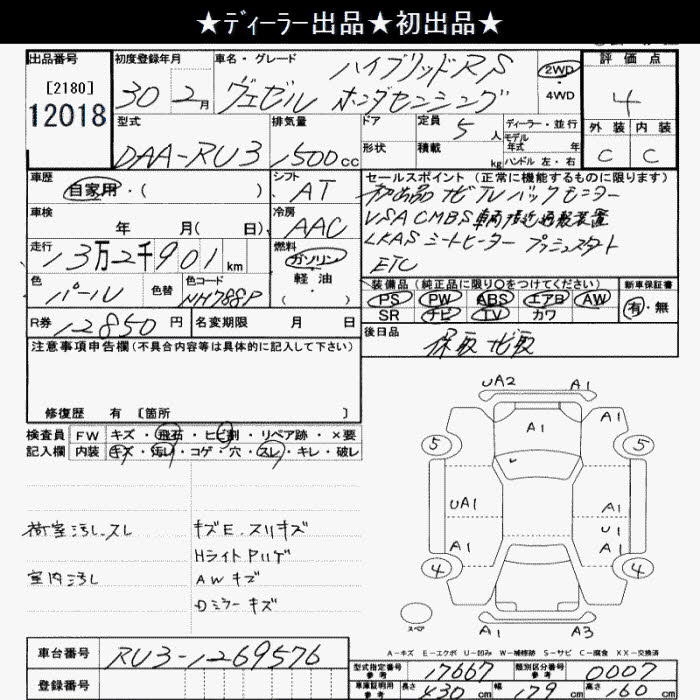 ★ディーラー出品★初出品★
出品番号
[2180]
12018
初度登録年月
30 2月
車名・グレード
ハイブリッドRS
ヴェゼル ホンダセンシング
2WD
・4WD
評価点
4
外装 内装
C C
型式
DAA-RU3
排気量
1500cc
ドア
形状
定員 5人
積載 kg
ディーラー・並行
モデル年式 年
ハンドル 左・右
車歴
自家用・( )
シフト
AT
車検
年 月( 日)
冷房
AAC
走行
13万2千901km
燃料
ガソリン
軽油
( ・ )
色
パール
色替
色コード
NH788P
R券 12850円
名変期限 月 日
セールスポイント(正常に機能するものに限ります)
初出品 ナビTVバックモニター
VSA CMBS 車両接近通報装置
LKAS シートヒーター プッシュスタート
ETC
装備品(純正品に限り〇をつけてください)
PS PW ABS エアB AW
SR ナビ TV カワ
新車保証書
有・無
後日品
保取 ナビ取
注意事項申告欄(不具合内容等は具体的に記入して下さい)
修復歴 有 〔箇所 〕
検査員記入欄
FW キズ・飛石・ヒビ割・リペア跡・×要
内装 キズ・汚れ・コゲ・穴・スレ・キレ・破レ
荷室汚し、スレ
室内汚し
キズE、スリキズ
HライトPハゲ
AWキズ
Dミラーキズ
UA2 A1
A1 A1 A1
5 5
UA1 A1
U1
A1 A1
4 4
スペア
A1 A3
A-キズ E-エクボ U-凹み W-補修跡 S-サビ C-腐食 XX-交換済
車台番号 RU3-1269576
登録番号
型式指定番号 参考 17667
類別区分番号 参考 0007
車庫証明用 参考 長さ 430cm 幅 179cm 高さ 160cm